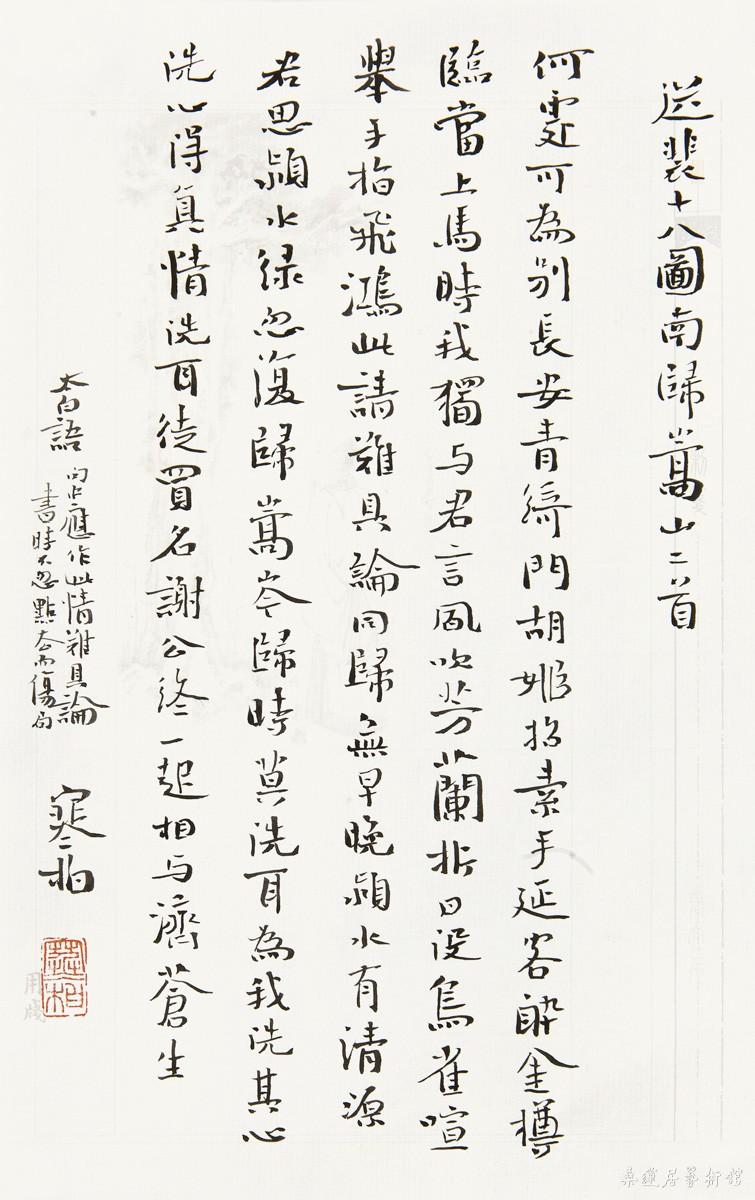 送裴十八圖南歸嵩山二首
何處可為別長安青綺門胡姬招素手延客醉金樽
臨當上馬時我獨与君言風吹芳蘭折日沒鳥雀喧
舉手指飛鴻此請難具論同歸無早晚潁水有清源
君思潁水綠忽復歸嵩岑歸時莫洗耳為我洗其心
洗心得真情洗耳徒買名謝公終一起相与濟蒼生
太白語
應作此情難具論
書時不忍點去而傷句
寒柏
用箋
桑蓮居藝術館